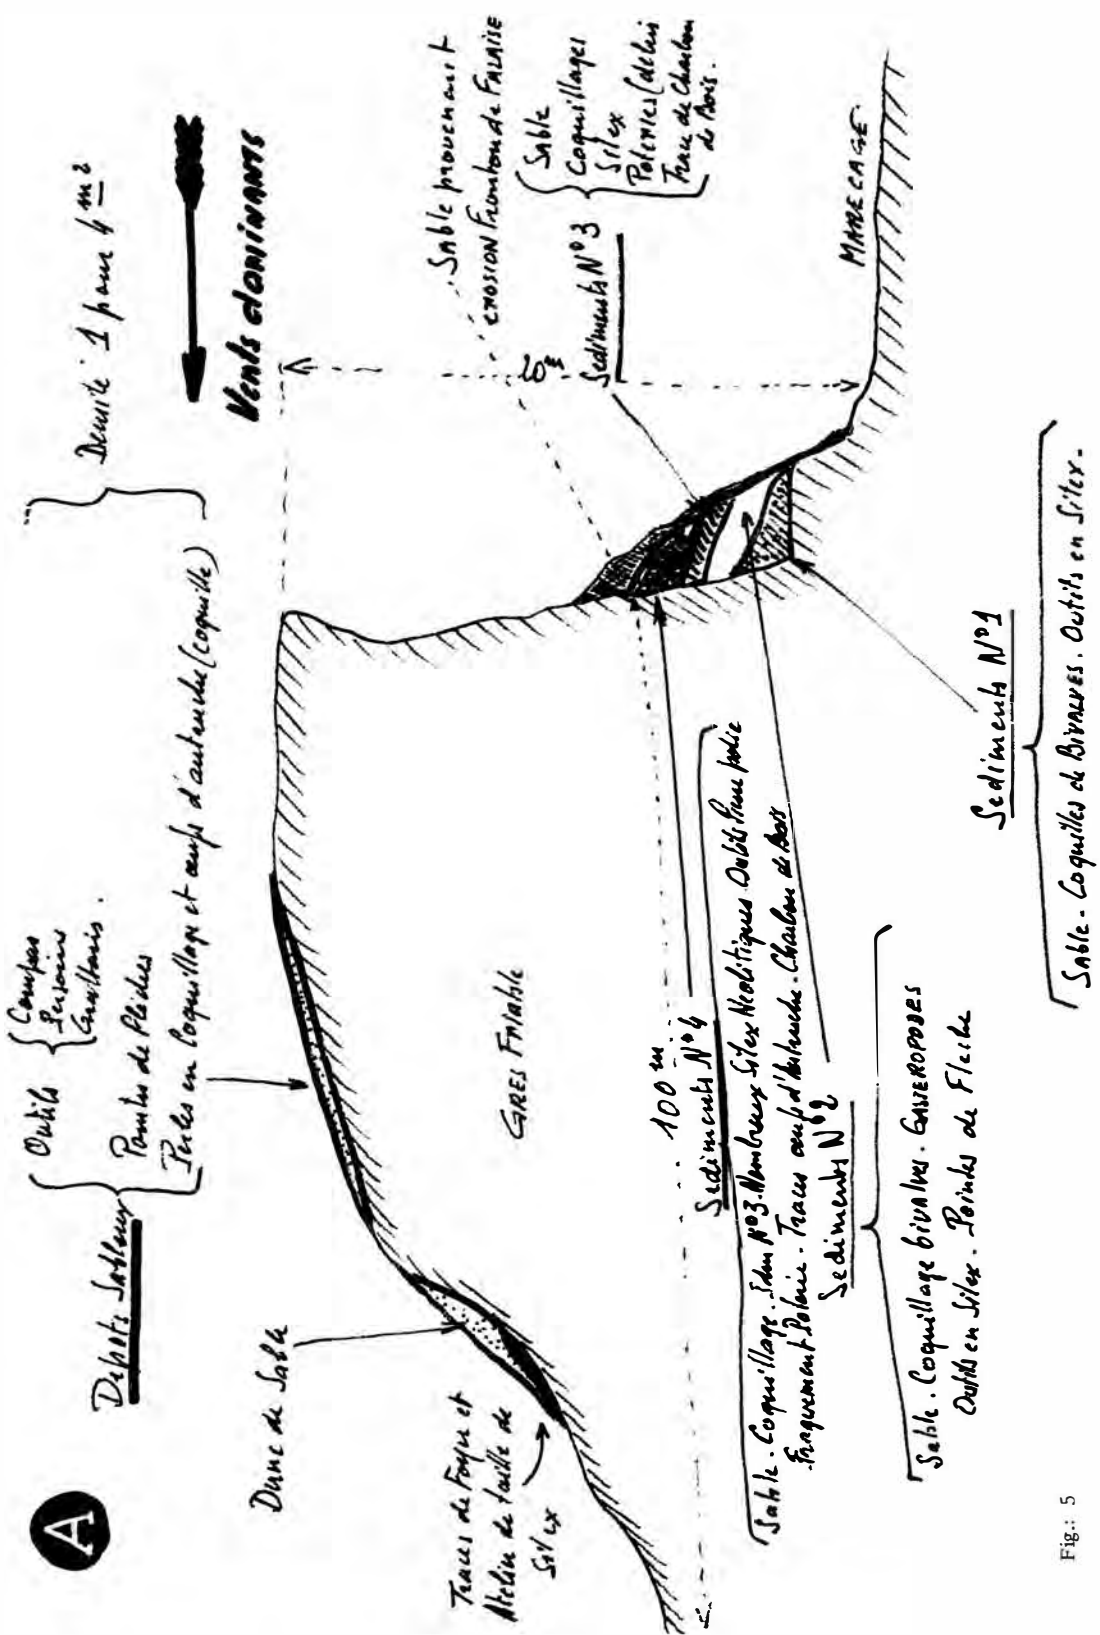 A
Depots Sableux
Outils
Compas
Persoirs
Grattoirs.
Pointes de Flêches
Perles en Coquillage et œufs d'autruche (coquille)
Densité 1 pour 4 m²
Vents dominants
Dune de Sable
Traces de Foyer et
Atelier de taille de
Silex
GRES FRIABLE
Sable provenant
erosion Fronton de FALAISE
Sediments N°3
Sable
Coquillages
Silex
Poteries (debris
Trace de Charbon
de Bois.
MARECAGE
100 m
Sediments N°4
Sable. Coquillage. N°3. Nombreux Silex Neolitiques Outils
Fraguement Poterie. Traces œufs d'Autruche. Charbon de Bois
Sediments N°2
Sable. Coquillage bivalves. GASTEROPODES
Outils en Silex. Pointes de Fleche
Sediments N°1
Sable. Coquilles de Bivalves. Outils en Silex.
Fig.: 5